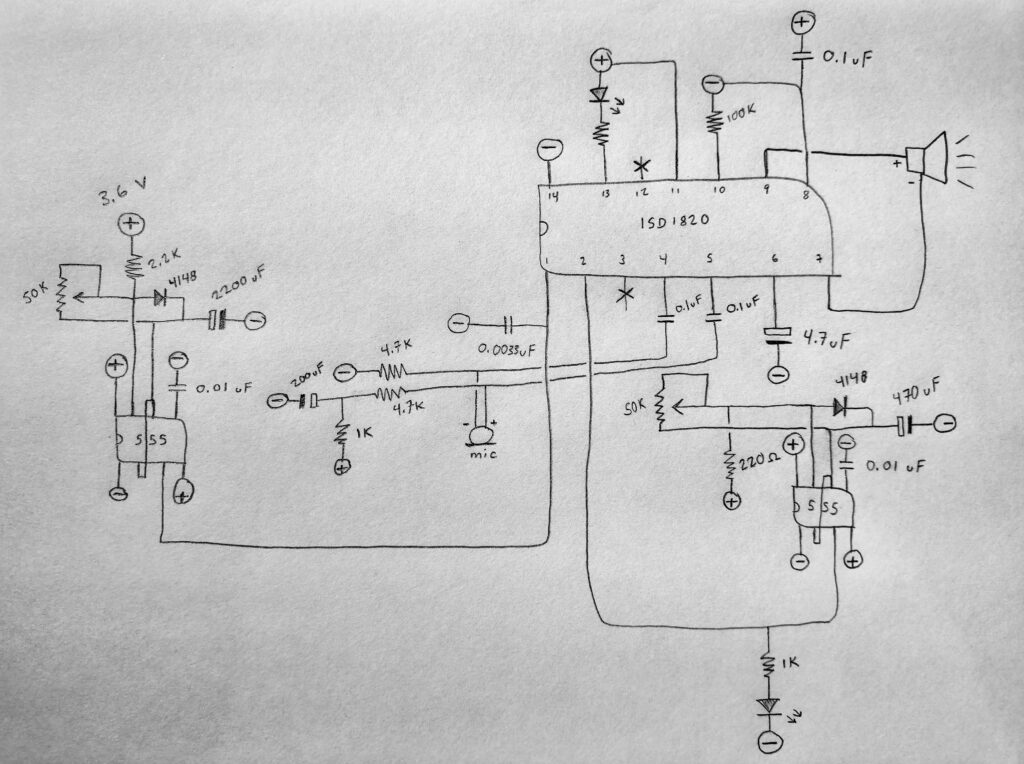 0.1uF
100K
+
-
14
13
12
11
10
9
8
ISD1820
1
2
3
4
5
6
7
3.6 V
2.2K
4148
2200uF
50K
0.01uF
555
0.1uF
0.1uF
4.7uF
0.0033uF
4.7K
200uF
4.7K
1K
-
+
mic
50K
4148
470uF
220Ω
0.01uF
555
1K